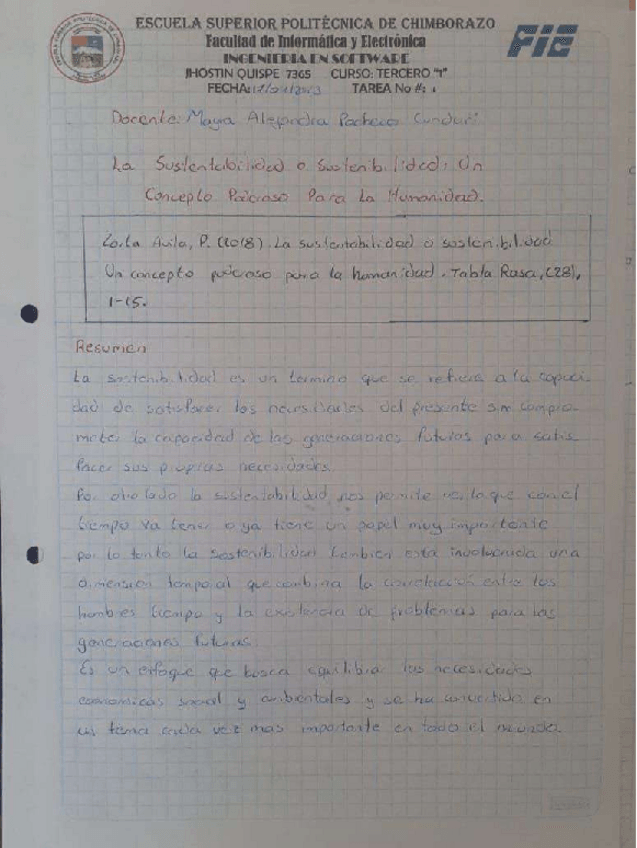 ESCUELA SUPERIOR POLITÉCNICA DE CHIMBORAZO
Facultad de Informática y Electrónica
INGENIERIA EN SOFTWARE
JHOSTIN QUISPE 7365 CURSO: TERCERO "1"
FECHA: TAREA No #: 1
FIE
Docente: Mayra Alejandra Pacheco Cunduri
La Sustentabilidad o Sostenibilidad: Un
Concepto Poderoso Para La Humanidad.
Ávila, P. (2018). La sustentabilidad o sostenibilidad
Un concepto poderoso para la humanidad. Tabla Rasa, (28),
1-15.
Resumen
La sostenibilidad es un termino que se refiere a la capaci-
dad de satisfacer las necesidades del presente sin compro
meter la capacidad de las generaciones futuras para satis
facer sus propias necesidades.
Por otro lado la sustentabilidad nos permite ver lo que con el
tiempo va tener o ya tiene un papel muy importante
por lo tanto la sostenibilidad tambien esta involucrada una
dimension temporal que combina la correlacion entre los
hombres tiempo y la existencia de problemas para las
generaciones futuras.
Es un enfoque que busca equilibrar las necesidades
economicas social y ambientales y se ha convertido en
un tema cada vez mas importante en todo el mundo